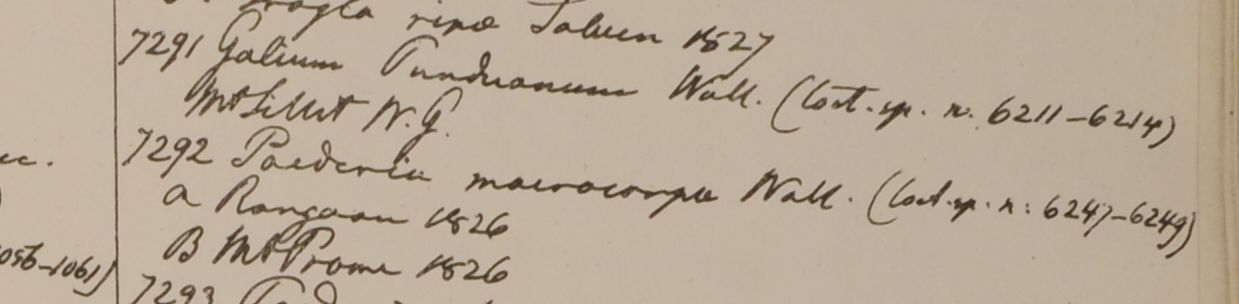 ripæ Saluen 1827
7291 Galium Punduanum Wall. (Cat. sp. n. 6211-6214)
Mt Sillet W. G.
7292 Paederia macrocarpa Wall. (Cat. sp. n. 6247-6249)
ec.
a Rangoon 1826
B Mt Prome 1826
056-1061)
7293